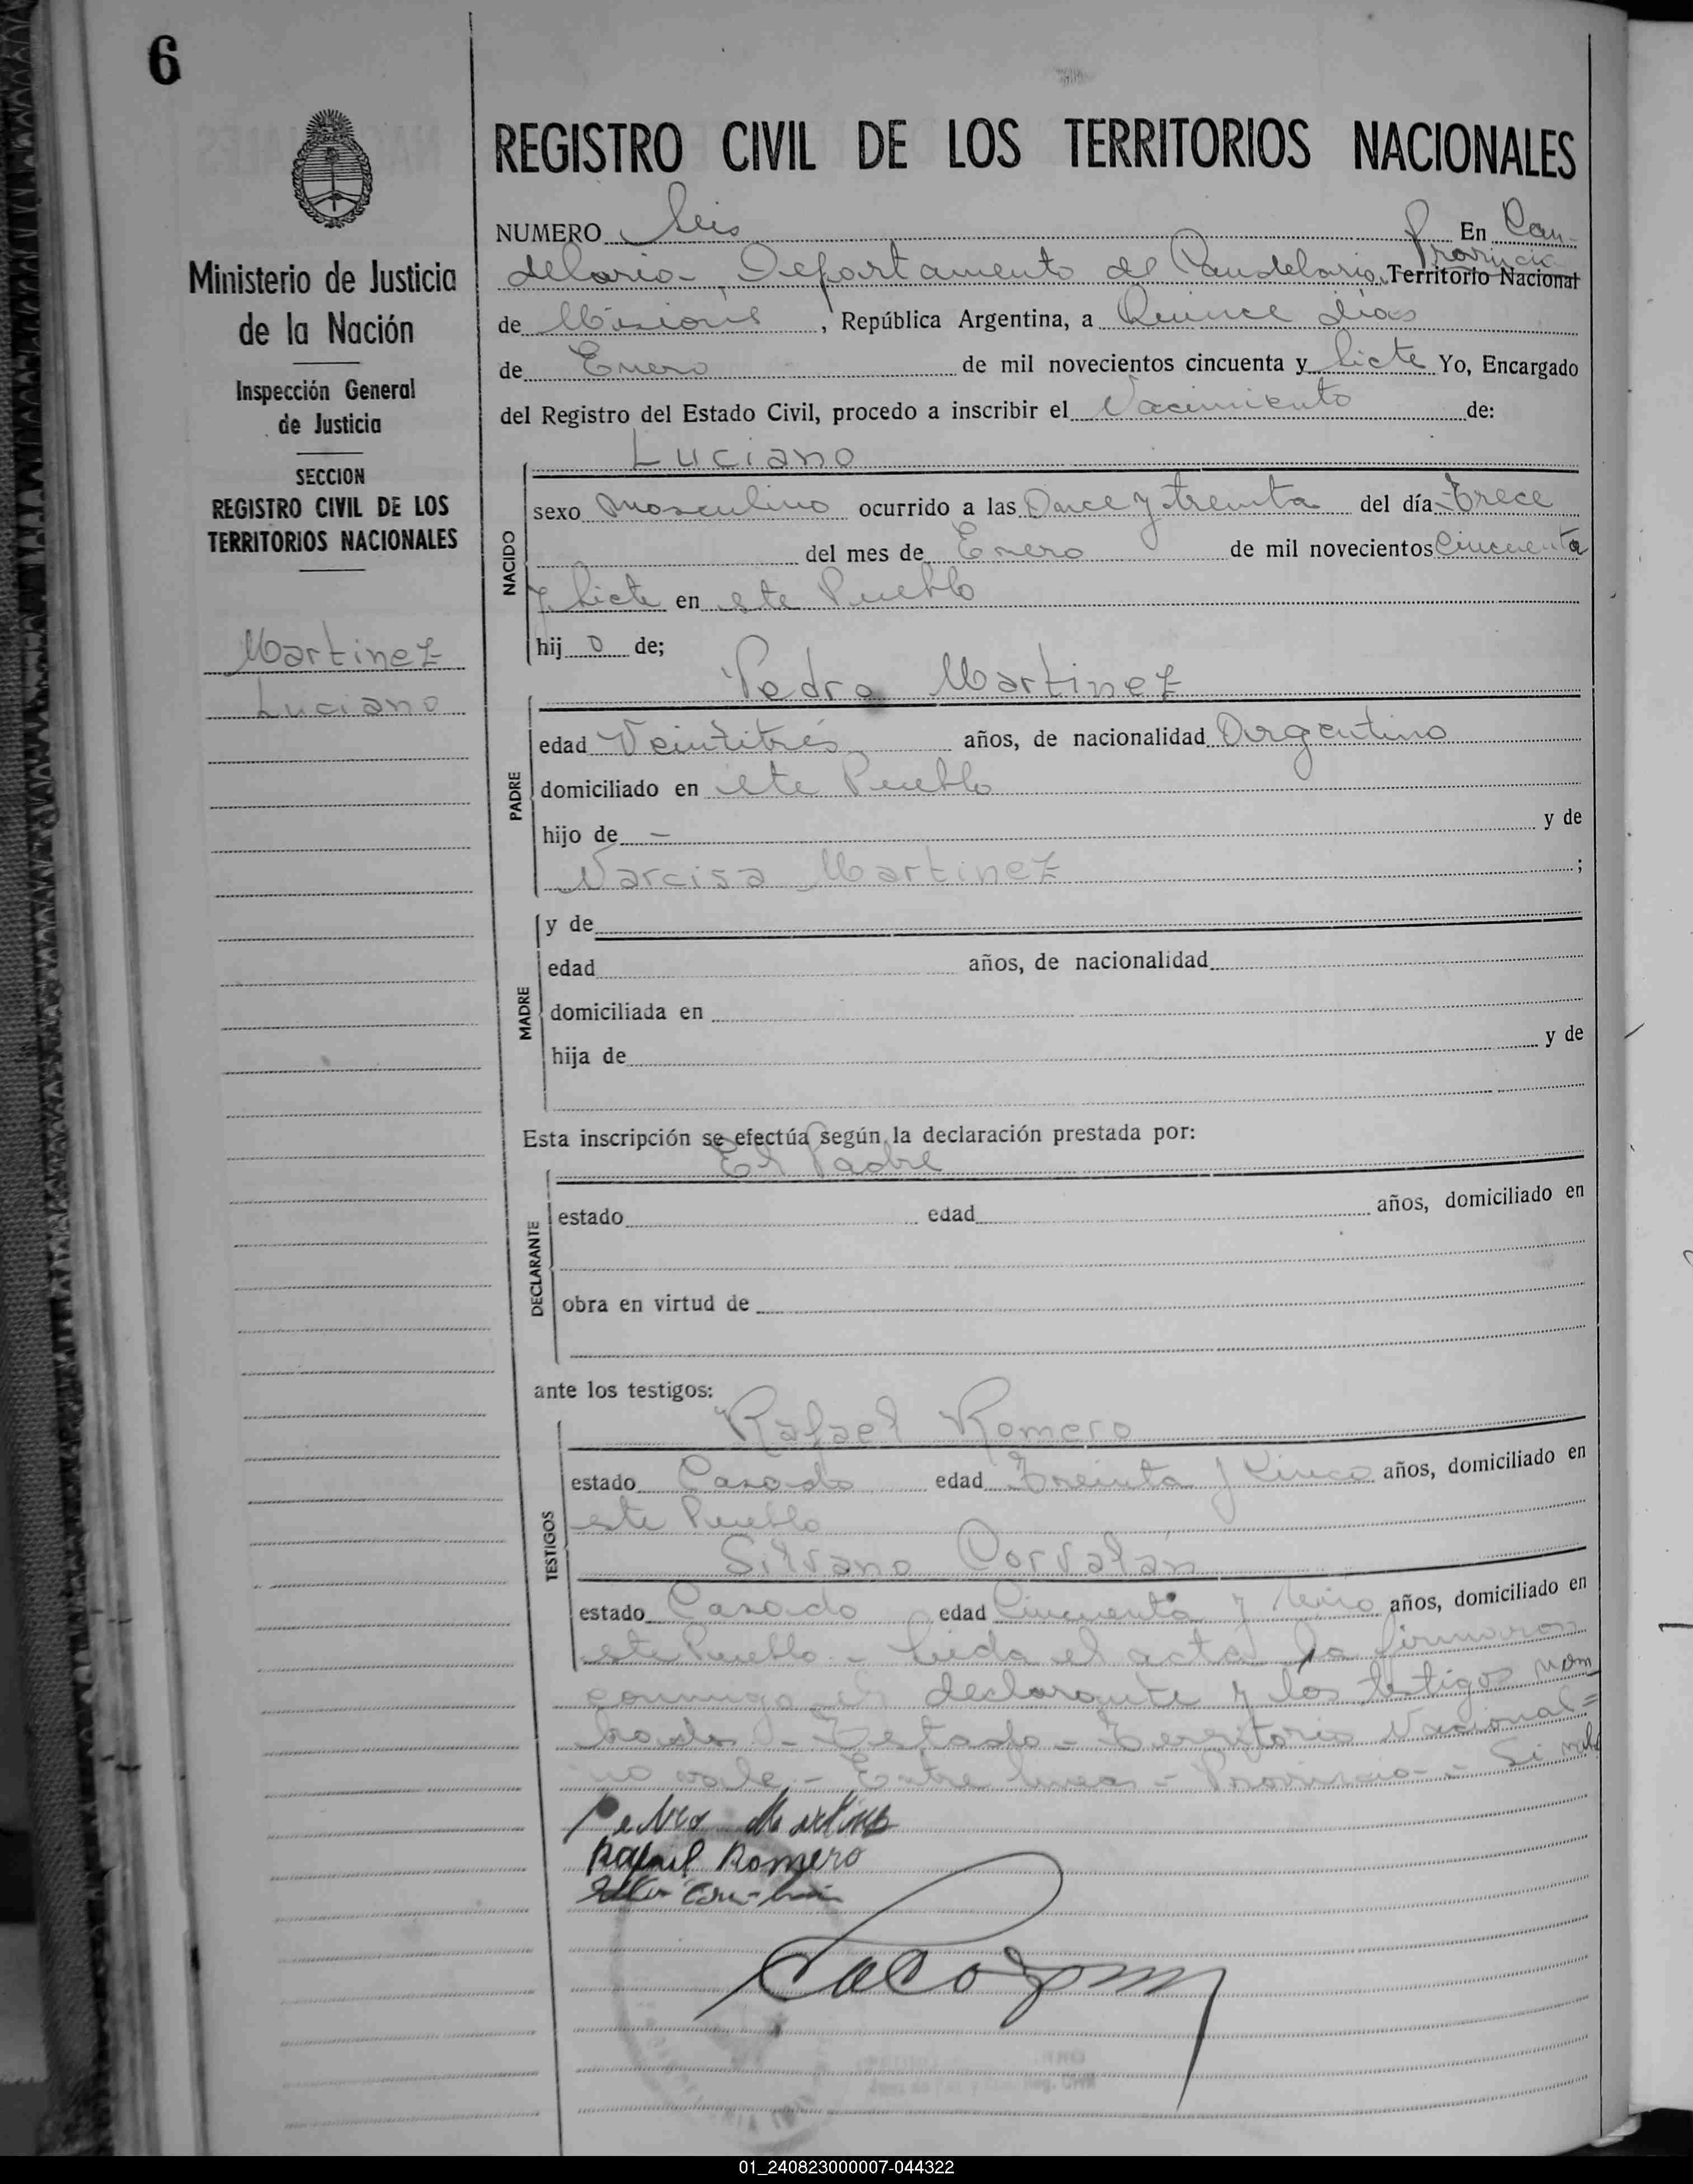 6
REGISTRO CIVIL DE LOS TERRITORIOS NACIONALES
Ministerio de Justicia
de la Nación
Inspección General
de Justicia
SECCION
REGISTRO CIVIL DE LOS
TERRITORIOS NACIONALES
Martinez
Luciano
NUMERO Seis En Can-
Provincia
delaria, Departamento de Candelaria, Territorio Nacional
de Misiones, República Argentina, a Quince dias
de Enero de mil novecientos cincuenta y Siete Yo, Encargado
del Registro del Estado Civil, procedo a inscribir el Nacimiento de:
Luciano
NACIDO
sexo masculino ocurrido a las Once y treinta del día Trece
del mes de Enero de mil novecientos Cincuenta
y Siete en este Pueblo
hij o de;
Pedro Martinez
PADRE
edad Veintitrés años, de nacionalidad Argentino
domiciliado en este Pueblo
hijo de — y de
Narcisa Martinez ;
MADRE
y de
edad años, de nacionalidad
domiciliada en
hija de y de
Esta inscripción se efectúa según la declaración prestada por:
El Padre
DECLARANTE
estado edad años, domiciliado en
obra en virtud de
ante los testigos:
Rafael Romero
TESTIGOS
estado Casado edad Treinta y Cinco años, domiciliado en
este Pueblo
Silvano Corvalán
estado Casado edad Cincuenta y años, domiciliado en
este Pueblo - Leida el acta la firmaron
conmigo el declarante y los testigos nom
brados - Testado - Territorio Nacional =
no vale - Entre lineas - Provincia - Si vale
Pedro Martinez
Rafael Romero
01_240823000007-044322